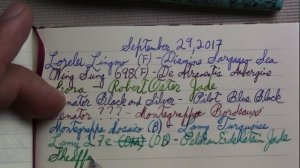 September 29, 2017
Lorelei Lingmo (F) - Diamine Sargasso Sea
Wing Sung 698 (F) - De Atramentis Aubergine
Kona - Robert Oster Jade
Senator Black and Silver - Pilot Blue Black
Senator ??? - Montegrappa Bordeaux
Montegrappa (B) - Lamy Turquoise
Lamy 27e (OB) - Pelikan Edelstein Jade
Sheaff